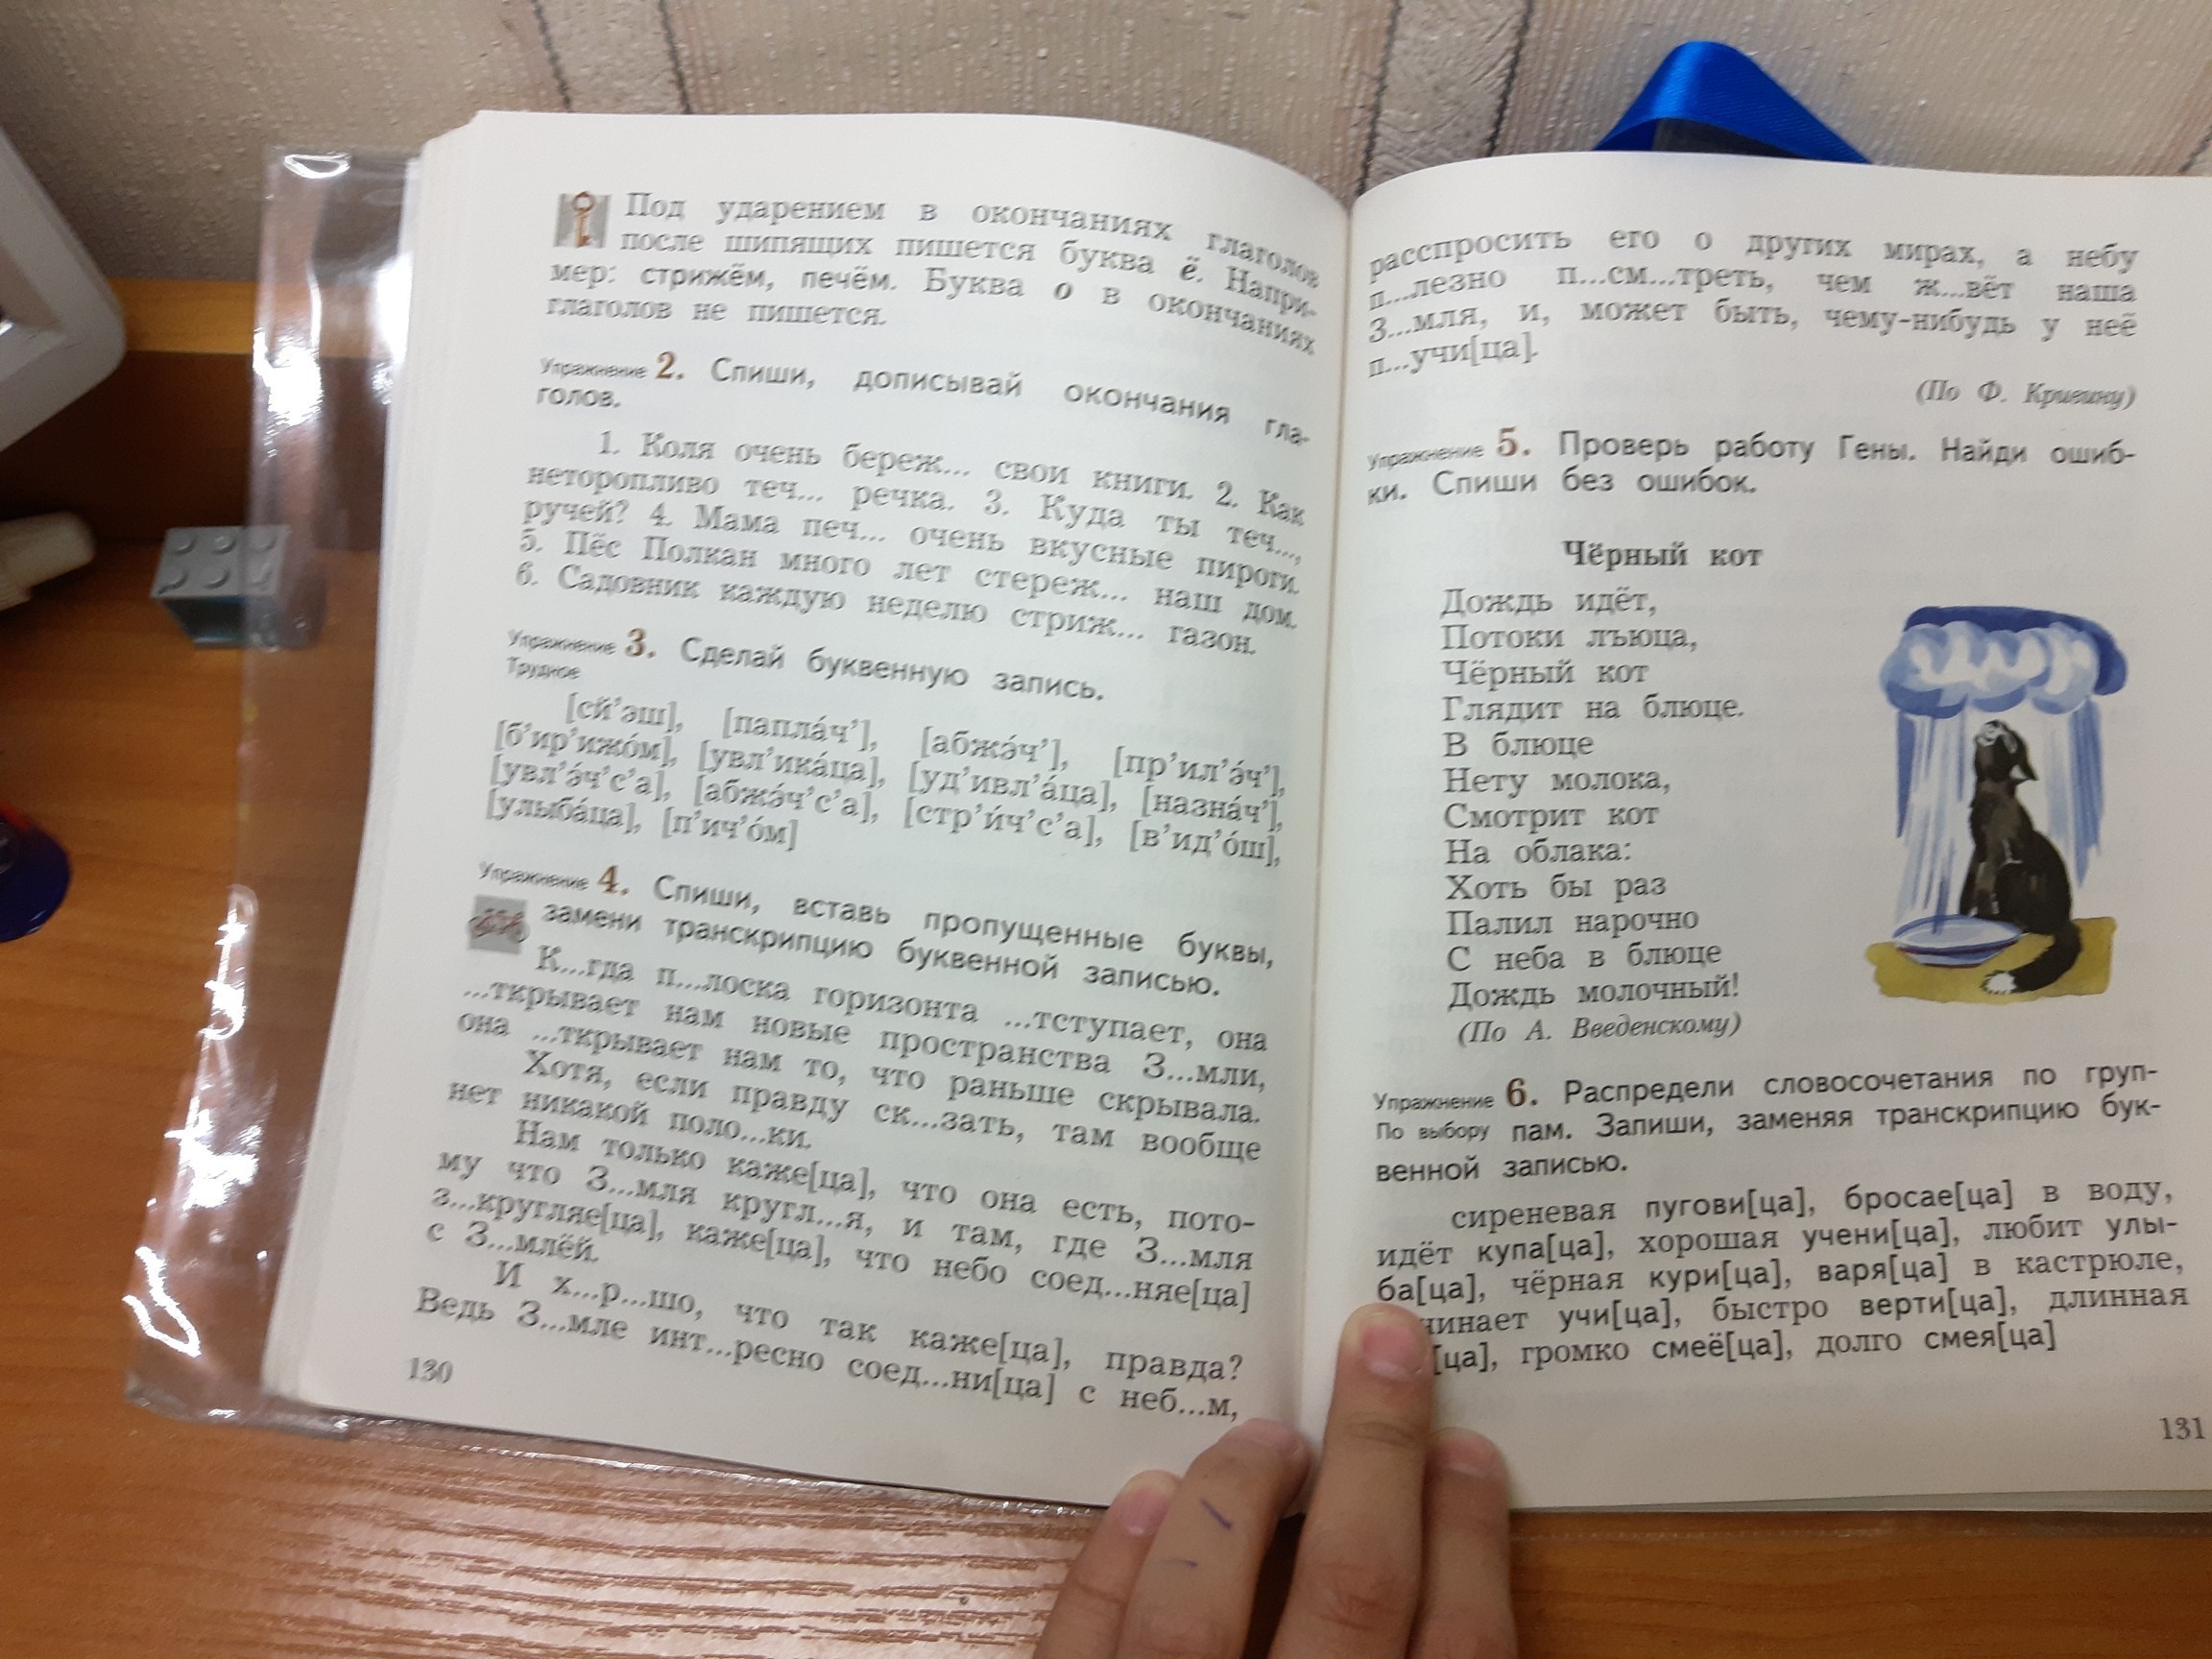 Под ударением в окончаниях глаголов
после шипящих пишется буква ё. Напри-
мер: стрижём, печём. Буква о в окончаниях
глаголов не пишется.
Упражнение 2. Спиши, дописывай окончания гла-
голов.
1. Коля очень береж... свои книги. 2. Как
неторопливо теч... речка. 3. Куда ты теч...,
ручей? 4. Мама печ... очень вкусные пироги.
5. Пёс Полкан много лет стереж... наш дом.
6. Садовник каждую неделю стриж... газон.
Упражнение 3. Сделай буквенную запись.
Трудное
[сй’эш], [папла́ч’], [абжэ́ч’], [пр’ил’э́ч’],
[б’ир’ижо́м], [увл’ика́ца], [уд’ивл’а́ца], [назна́ч’],
[увл’э́ч’с’а], [абжэ́ч’с’а], [стр’и́ч’с’а], [в’ид’о́ш],
[улыба́ца], [п’ич’о́м]
Упражнение 4. Спиши, вставь пропущенные буквы,
замени транскрипцию буквенной записью.
К...гда п...лоска горизонта ...тступает, она
...ткрывает нам новые пространства З...мли,
она ...ткрывает нам то, что раньше скрывала.
Хотя, если правду ск...зать, там вообще
нет никакой поло...ки.
Нам только каже[ца], что она есть, пото-
му что З...мля кругл...я, и там, где З...мля
з...кругляе[ца], каже[ца], что небо соед...няе[ца]
с З...млёй.
И х...р...шо, что так каже[ца], правда?
Ведь З...мле инт...ресно соед...ни[ца] с неб...м,
130
расспросить его о других мирах, а небу
п...лезно п...см...треть, чем ж...вёт наша
З...мля, и, может быть, чему-нибудь у неё
п...учи[ца].
(По Ф. Кривину)
Упражнение 5. Проверь работу Гены. Найди ошиб-
ки. Спиши без ошибок.
Чёрный кот
Дождь идёт,
Потоки лъюца,
Чёрный кот
Глядит на блюце.
В блюце
Нету молока,
Смотрит кот
На облака:
Хоть бы раз
Палил нарочно
С неба в блюце
Дождь молочный!
(По А. Введенскому)
Упражнение 6. Распредели словосочетания по груп-
По выбору пам. Запиши, заменяя транскрипцию бук-
венной записью.
сиреневая пугови[ца], бросае[ца] в воду,
идёт купа[ца], хорошая учени[ца], любит улы-
ба[ца], чёрная кури[ца], варя[ца] в кастрюле,
учи[ца], быстро верти[ца], длинная
[ца], громко смеё[ца], долго смея[ца]
131